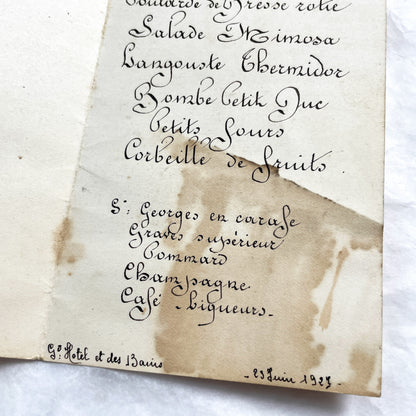 Poularde de Bresse rotie
Salade Mimosa
Langouste Thermidor
Bombe Petit Duc
Petits Fours
Corbeille de fruits
St Georges en carafe
Graves supérieur
Pommard
Champagne
Café - Liqueurs -
Gd Hotel et des Bains
- 23 Juin 1927 -